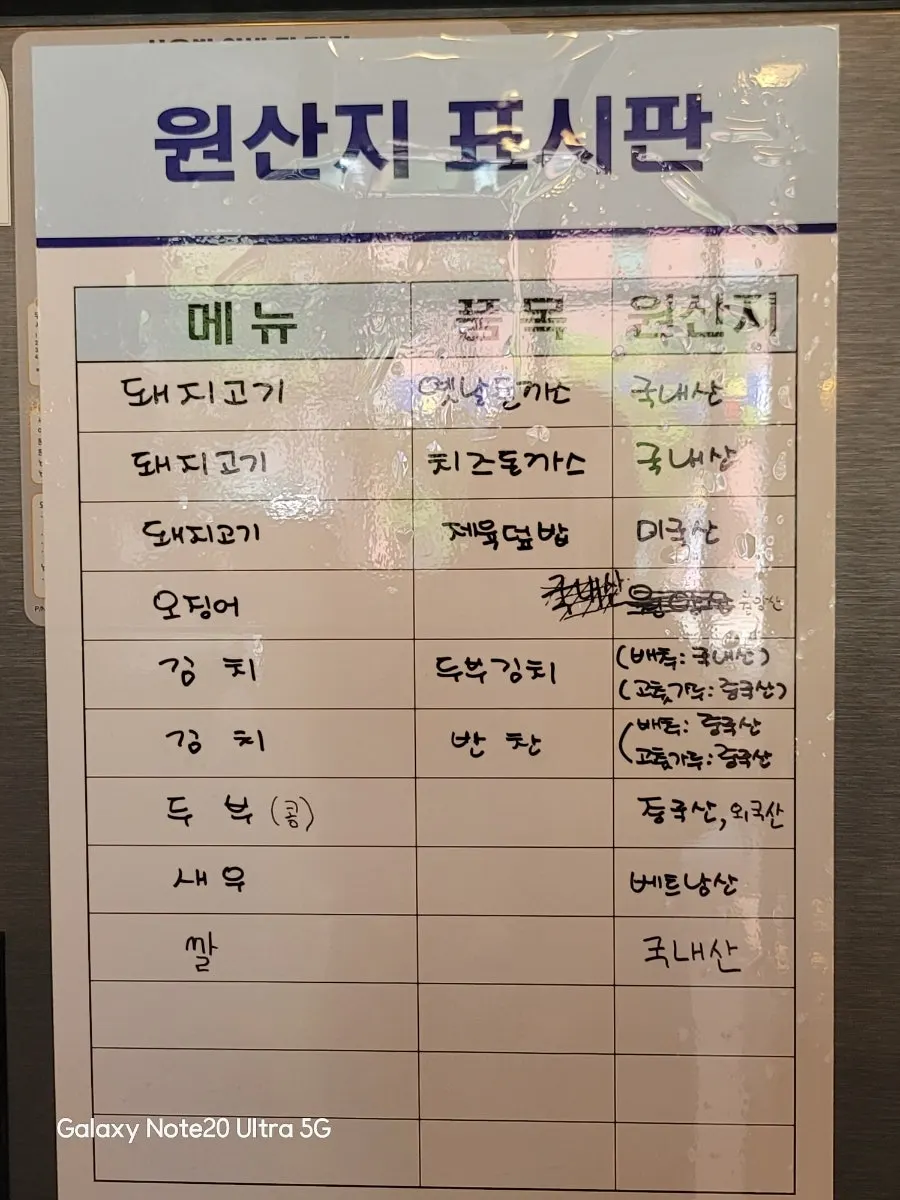 원산지 표시판
메뉴 품목 원산지
돼지고기 옛날돈까스 국내산
돼지고기 치즈돈까스 국내산
돼지고기 제육덮밥 미국산
오징어
김치 두부김치 (배추: 국내산)
(고춧가루: 중국산)
김치 반찬 (배추: 중국산
고춧가루: 중국산
두부(콩) 중국산, 외국산
새우 베트남산
쌀 국내산
Galaxy Note20 Ultra 5G